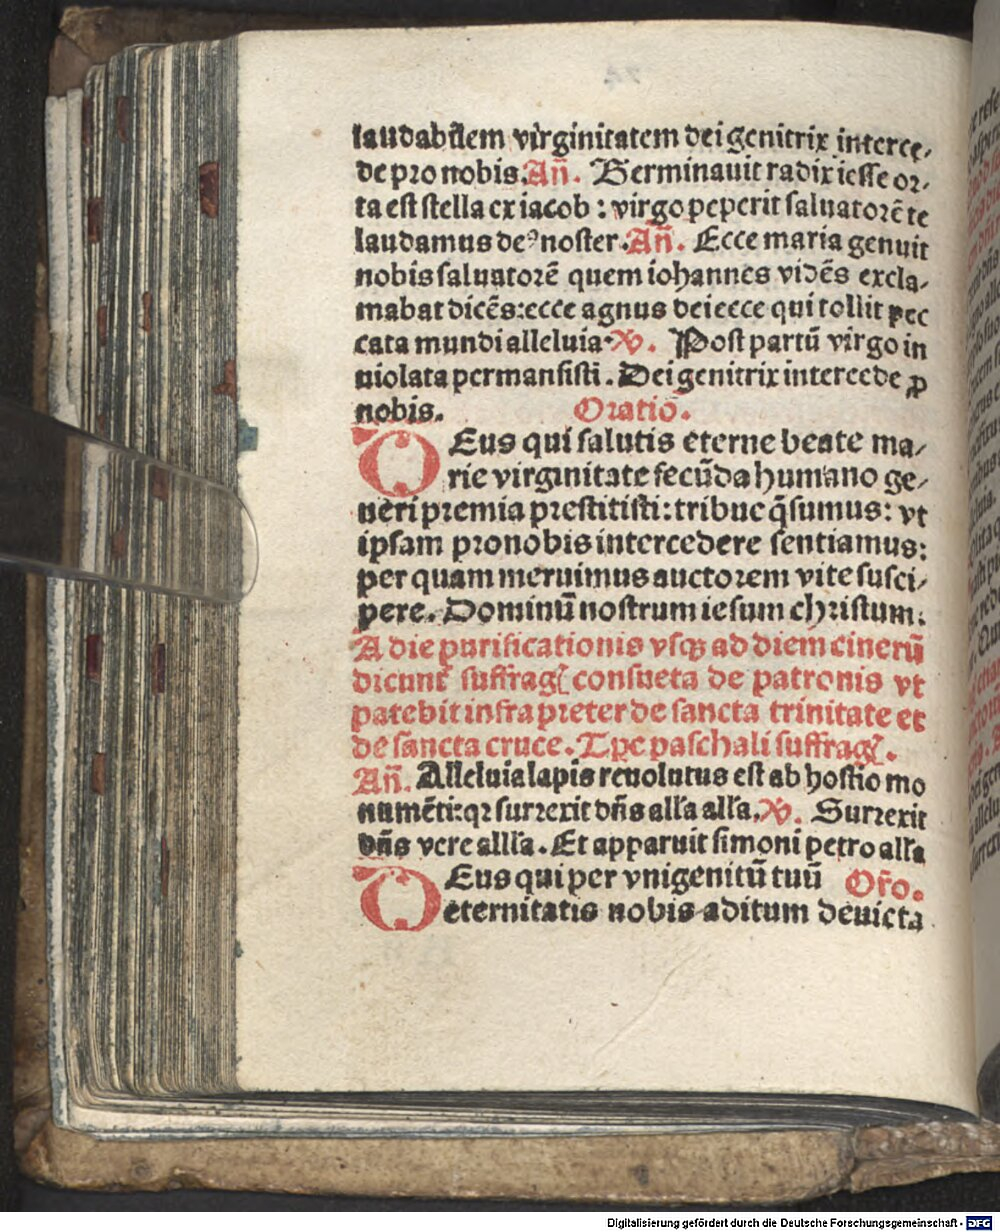 laudabilem virginitatem dei genitrix interce⸗
de pro nobis. Añ. Germinauit radix iesse or⸗
ta est stella ex iacob : virgo peperit saluatorē te
laudamus deꝰ noster. Añ. Ecce maria genuit
nobis saluatorē quem iohannes vidēs excla⸗
mabat dicēs: ecce agnus dei ecce qui tollit pec
cata mundi alleluia. ℣. Post partū virgo in
uiolata permansisti. Dei genitrix intercede ꝓ
nobis. Oratio.
DEus qui salutis eterne beate ma⸗
rie virginitate fecūda humano ge⸗
neri premia prestitisti: tribue q̄sumus: vt
ipsam pro nobis intercedere sentiamus:
per quam meruimus auctorem vite susci⸗
pere. Dominū nostrum iesum christum.
A die purificationis vsqȝ ad diem cinerū
dicunt᷑ suffragꝭ consueta de patronis vt
patebit infra preter de sancta trinitate et
de sancta cruce. Tꝑe paschali suffragꝭ.
Añ. Alleluia lapis reuolutus est ab hostio mo
numēti: qꝛ surrexit dñs alľa alľa. ℣. Surrexit
dñs vere allľa. Et apparuit simoni petro alľa
DEus qui per vnigenitū tuū Oŕo.
eternitatis nobis aditum deuicta
Digitalisierung gefördert durch die Deutsche Forschungsgemeinschaft - DFG